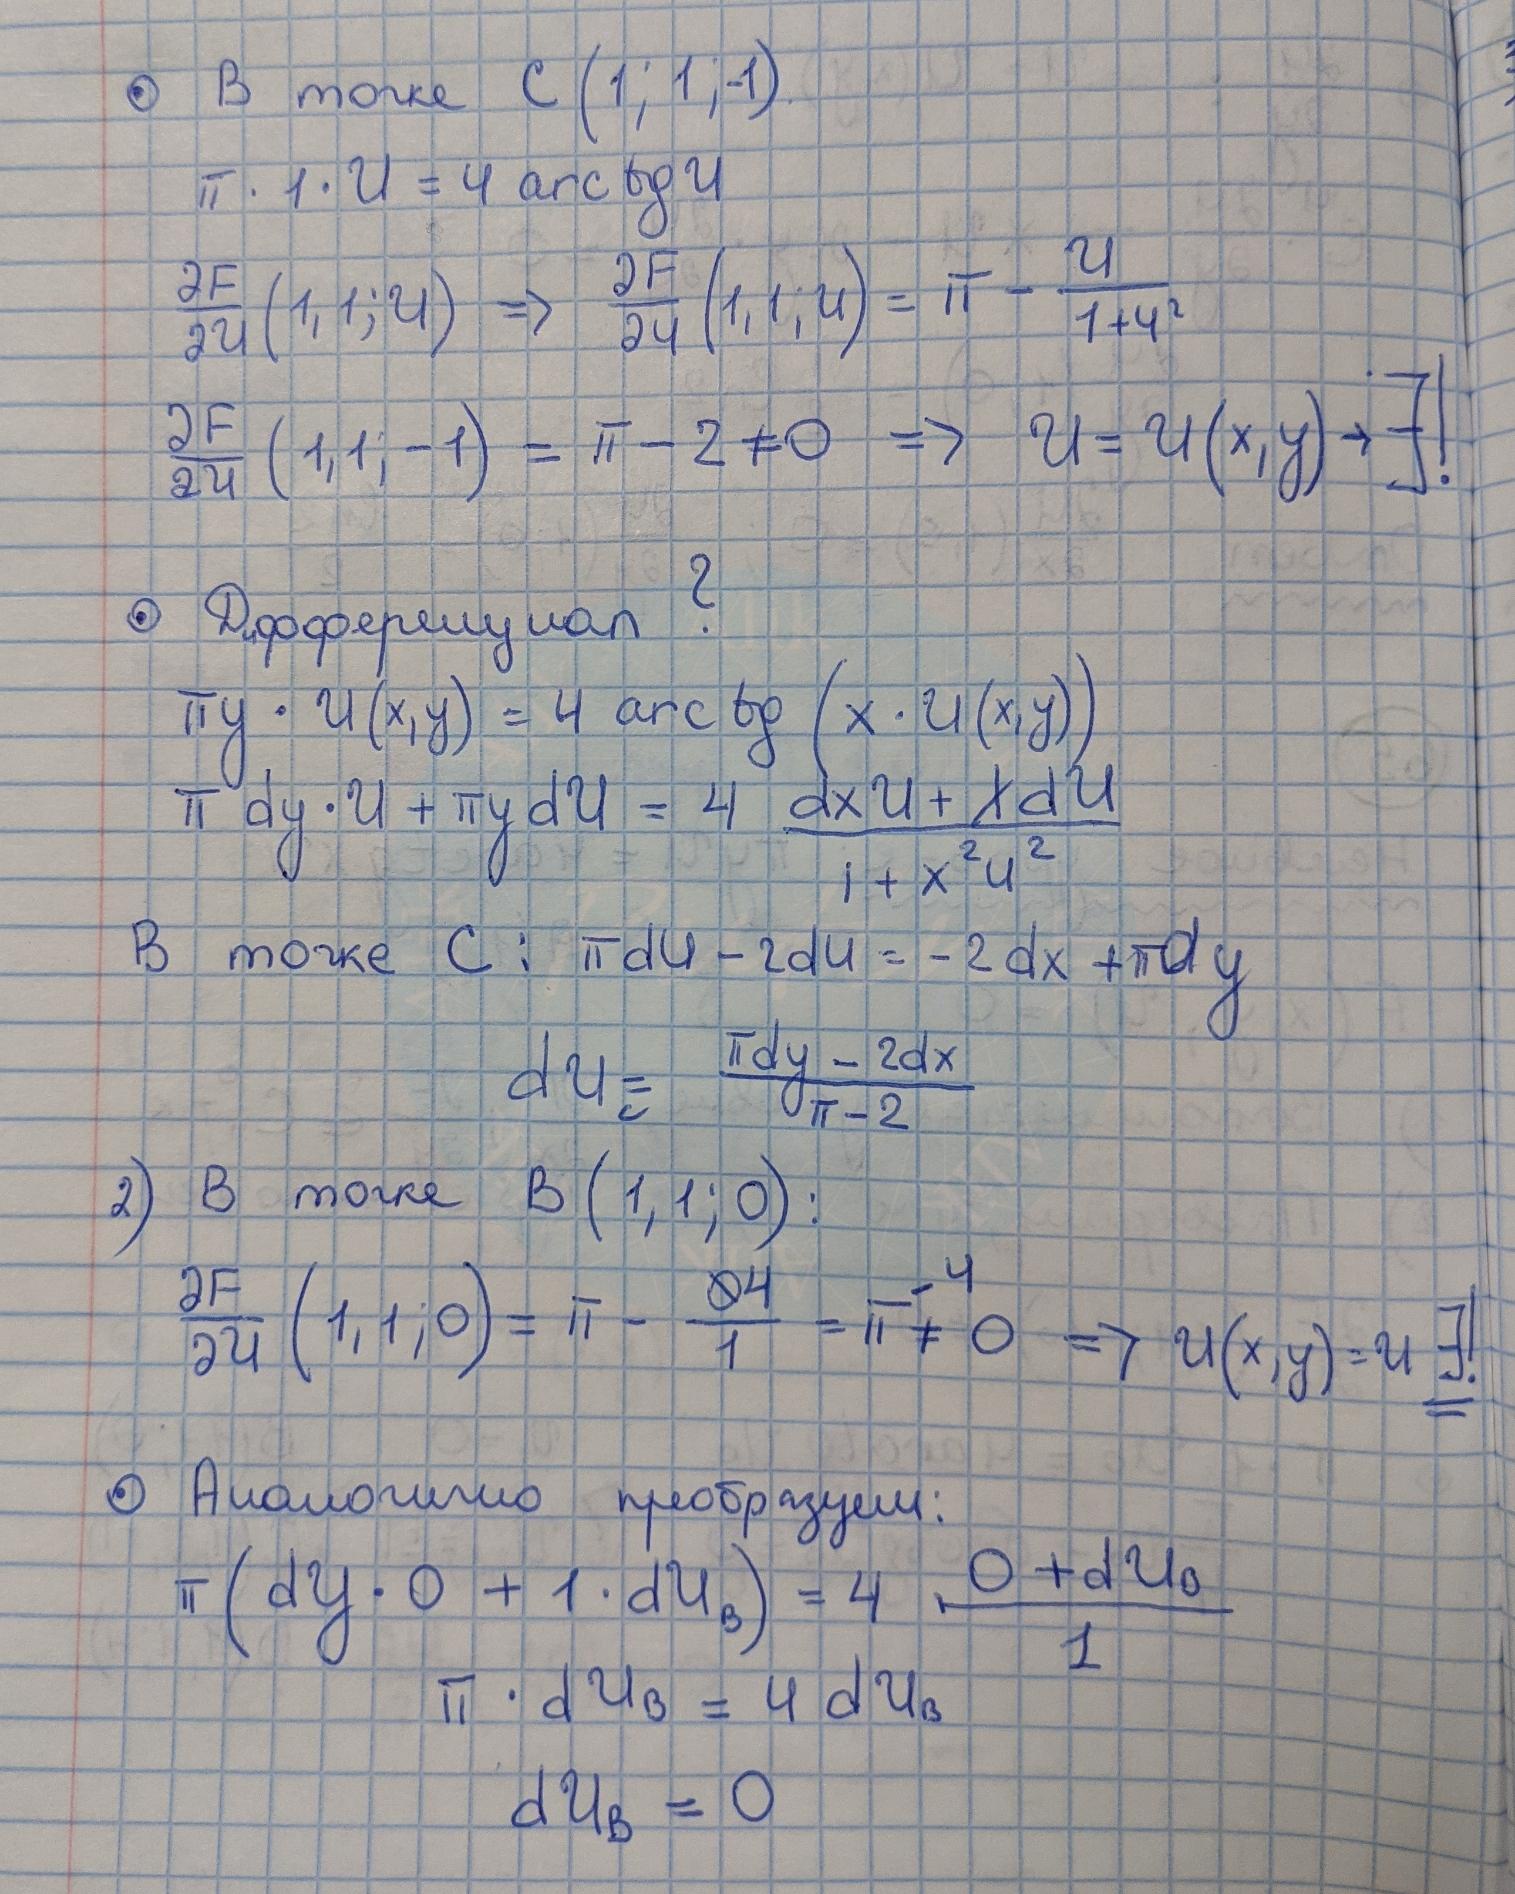 ⊙ В точке C (1; 1; -1)
π · 1 · U = 4 arctg U
∂F/∂U (1, 1; U) => ∂F/∂U (1, 1, U) = π - 4/(1+U²)
∂F/∂U (1, 1; -1) = π - 2 ≠ 0 => U = U(x, y) → ∃!
⊙ Дифференциал ?
πy · U(x,y) = 4 arctg (x · U(x,y))
π dy · U + πy dU = 4 (dx U + x dU)/(1 + x²U²)
В точке C : πdU - 2dU = -2dx + πdy
dU = (πdy - 2dx)/(π - 2)
2) В точке B (1, 1; 0) :
∂F/∂U (1, 1; 0) = π - 4/1 = π - 4 ≠ 0 => U(x, y) = U ∃!
⊙ Аналогично преобразуем:
π (dy · 0 + 1 · dU_B) = 4 (0 + dU_B)/1
π · dU_B = 4 dU_B
dU_B = 0